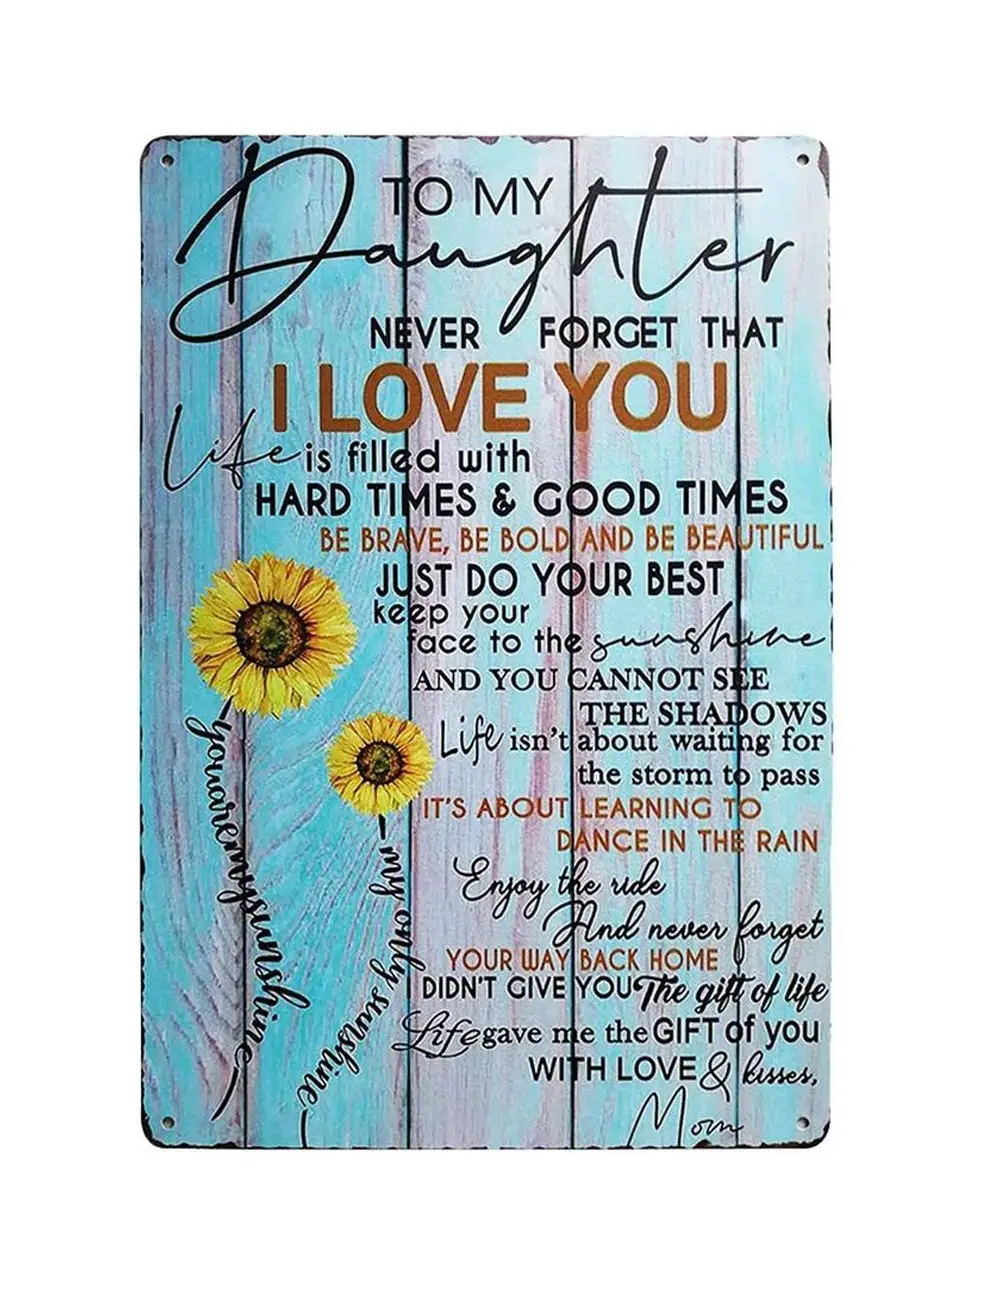 TO MY
Daughter
NEVER FORGET THAT
I LOVE YOU
Life is filled with
HARD TIMES & GOOD TIMES
BE BRAVE, BE BOLD AND BE BEAUTIFUL
JUST DO YOUR BEST
keep your
face to the sunshine
AND YOU CANNOT SEE
THE SHADOWS
Life isn't about waiting for
the storm to pass
IT'S ABOUT LEARNING TO
DANCE IN THE RAIN
Enjoy the ride
And never forget
YOUR WAY BACK HOME
DIDN'T GIVE YOU The gift of life
Life gave me the GIFT Of you
WITH LOVE & kisses,
Mom
you are my sunshine
my only sunshine